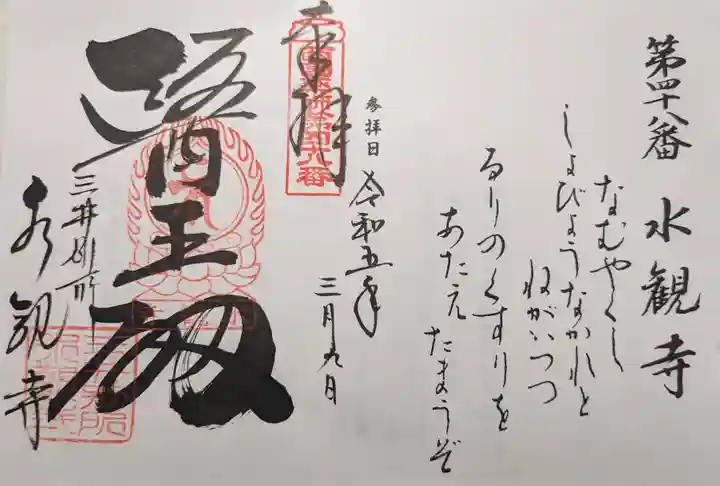 第四十八番 水観寺
なむやくし
しょびょうなかれと
ねがいつつ
るりのくすりを
あたえ
たまうぞ
参拝日 令和五年
三月九日
奉拝
西国薬師第四十八番
醫王殿
三井別所
水観寺